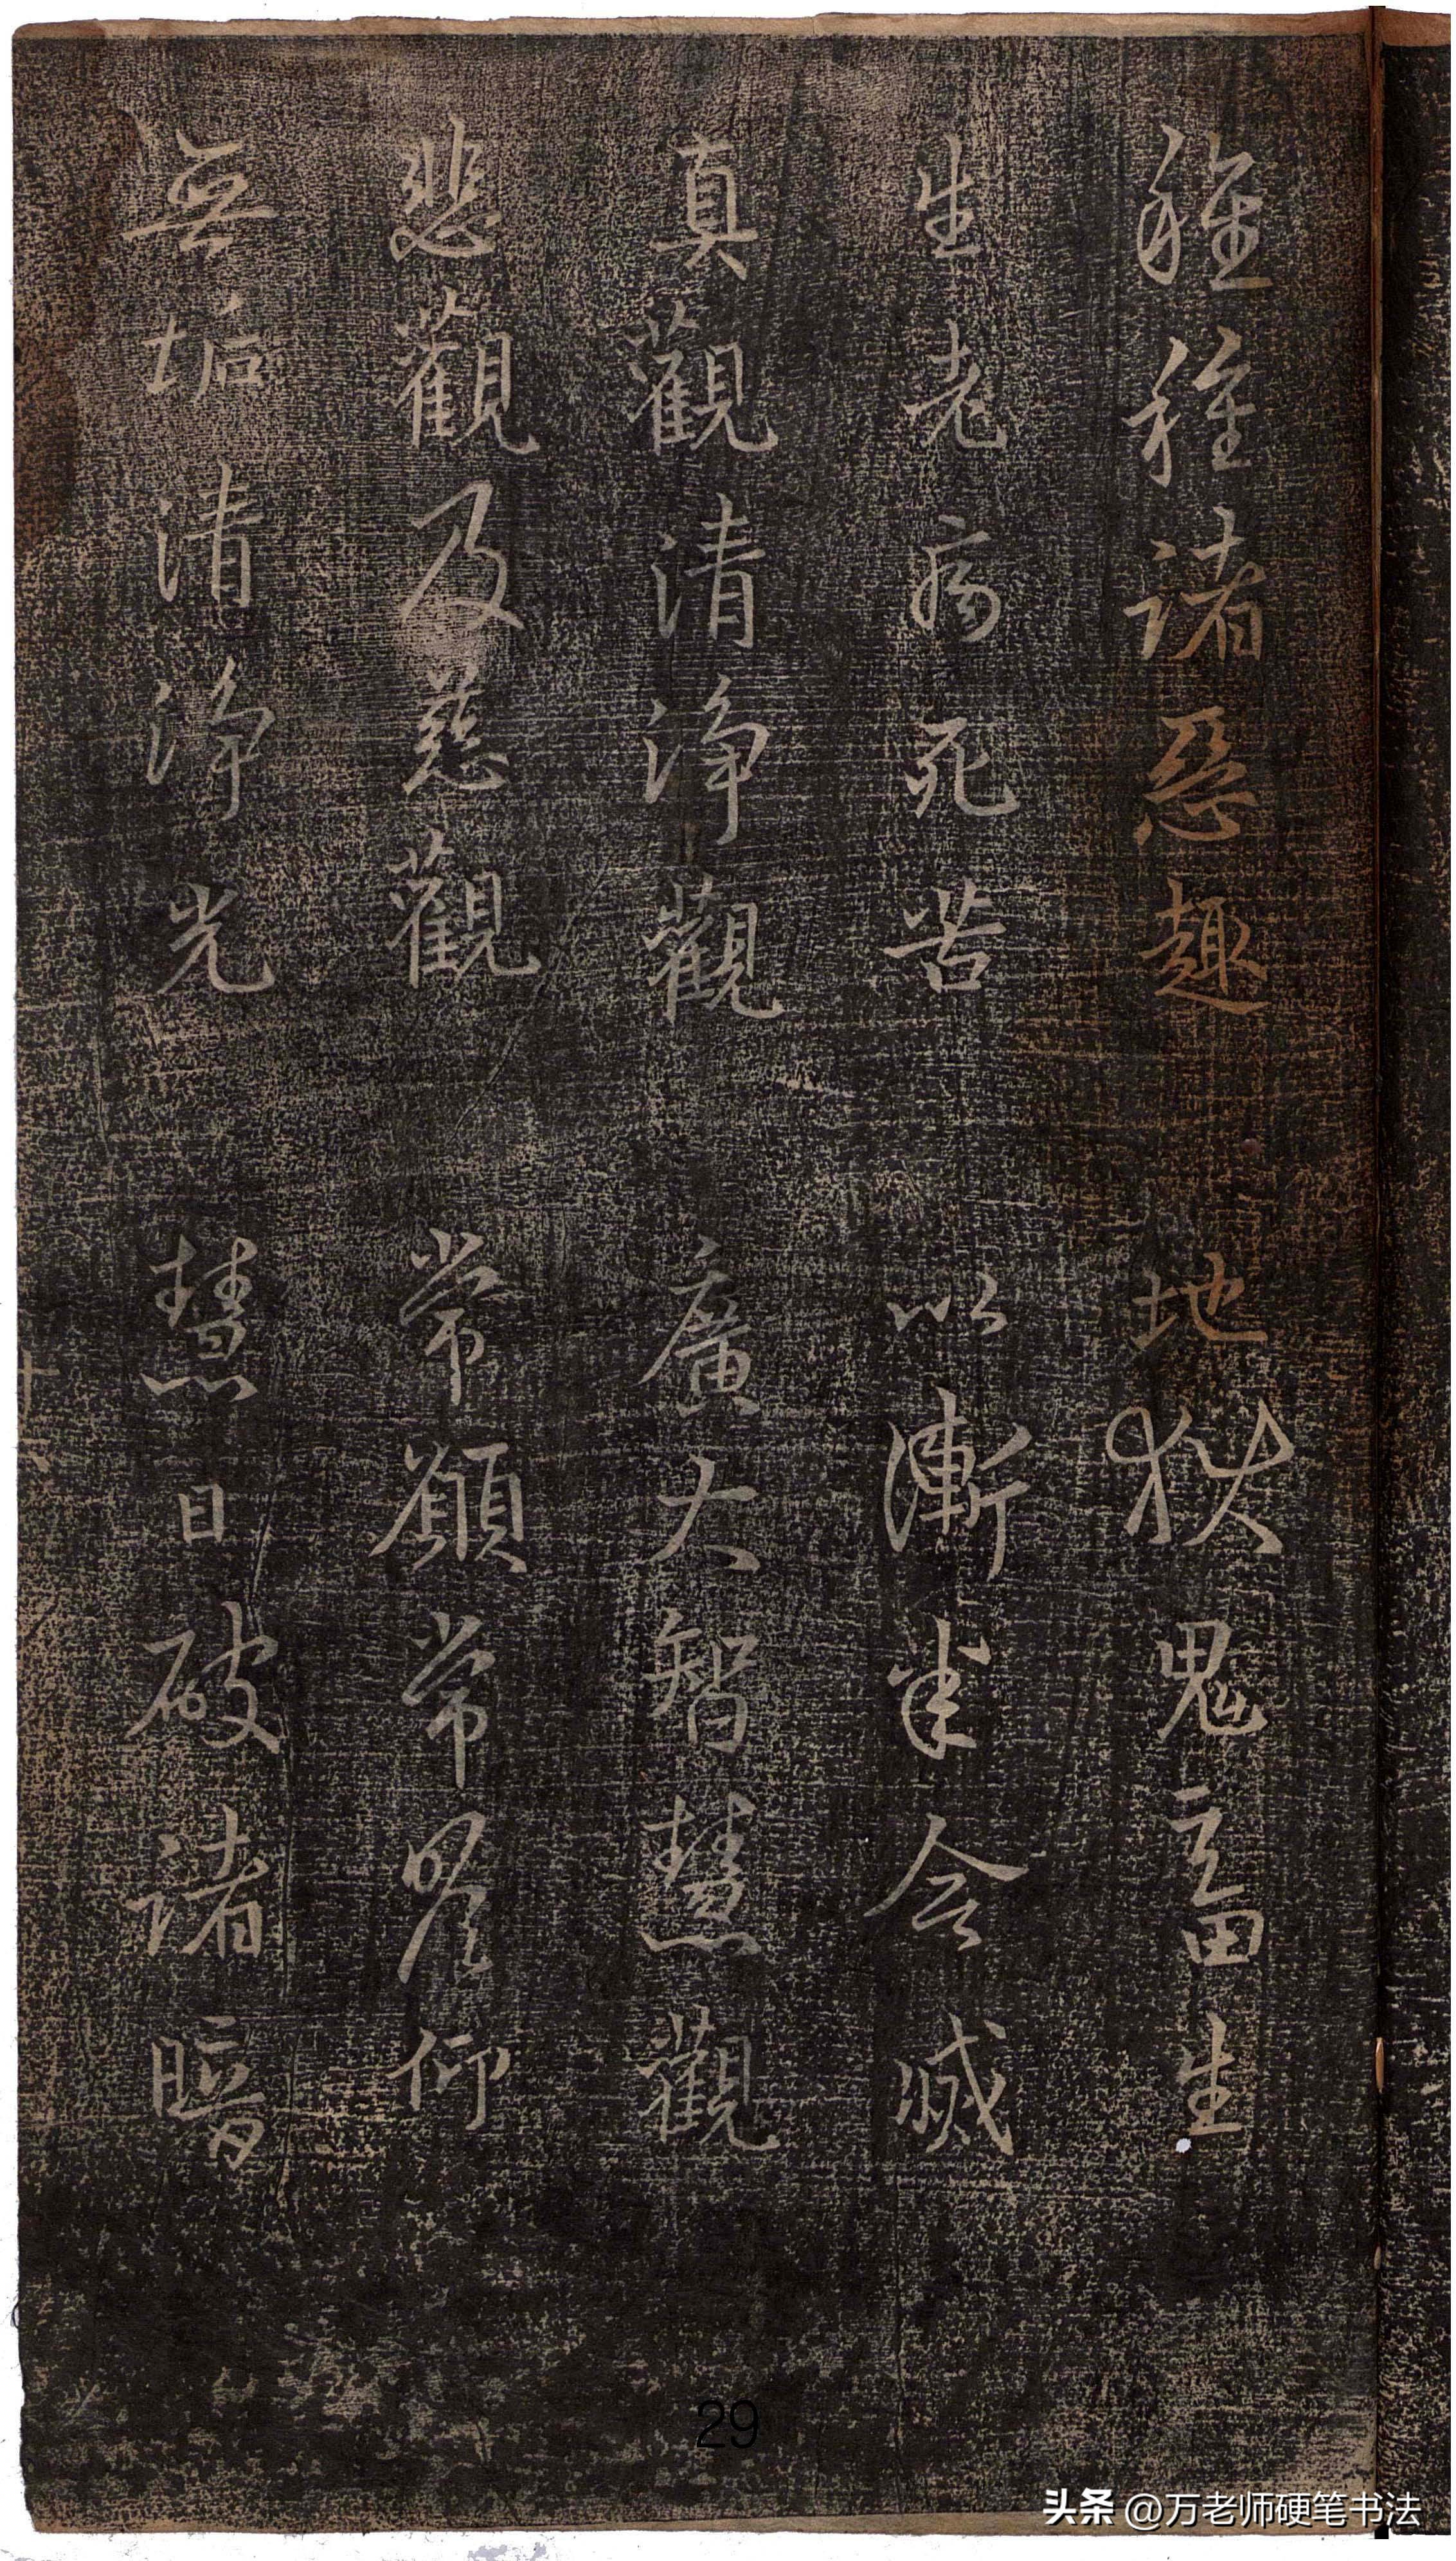 種種諸惡趣 地獄鬼畜生
生老病死苦 以漸悉令滅
真觀清淨觀 廣大智慧觀
悲觀及慈觀 常願常瞻仰
無垢清淨光 慧日破諸暗
29
头条 @万老师硬笔书法